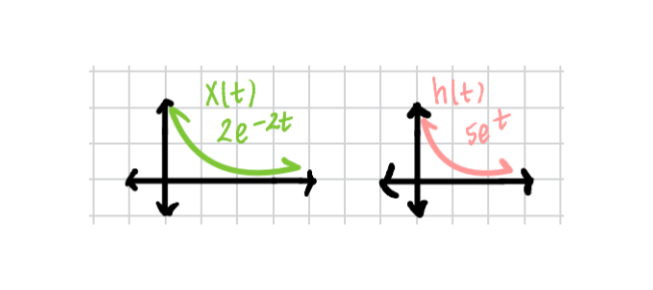 x(t)
2e^-2t
h(t)
5e^t